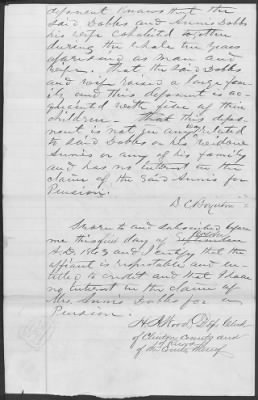 deponent knows that the
said Dobbs and Annis Dobbs
his wife cohabited together
during the whole ten years
aforesaid as man and
wife. That the said Dobbs
and wife raised a large fam-
ily and this deponent is ac-
quainted with five of their
children - That this depo-
nent is not in any related
to said Dobbs or his widow
Annis or any of his family
and has no interest in the
claim of the said Annis for
Pension.
D C Boynton
Sworn to and subscribed before
me this first day of
A.D. 1863 and I certify that the
affiant is respectable and en-
titled to credit and that I have
no interest in the claim of
Mrs Annis Dobbs for a
Pension.
H S Wood, Dep Clerk
of Clinton County and
of the Circuit thereof